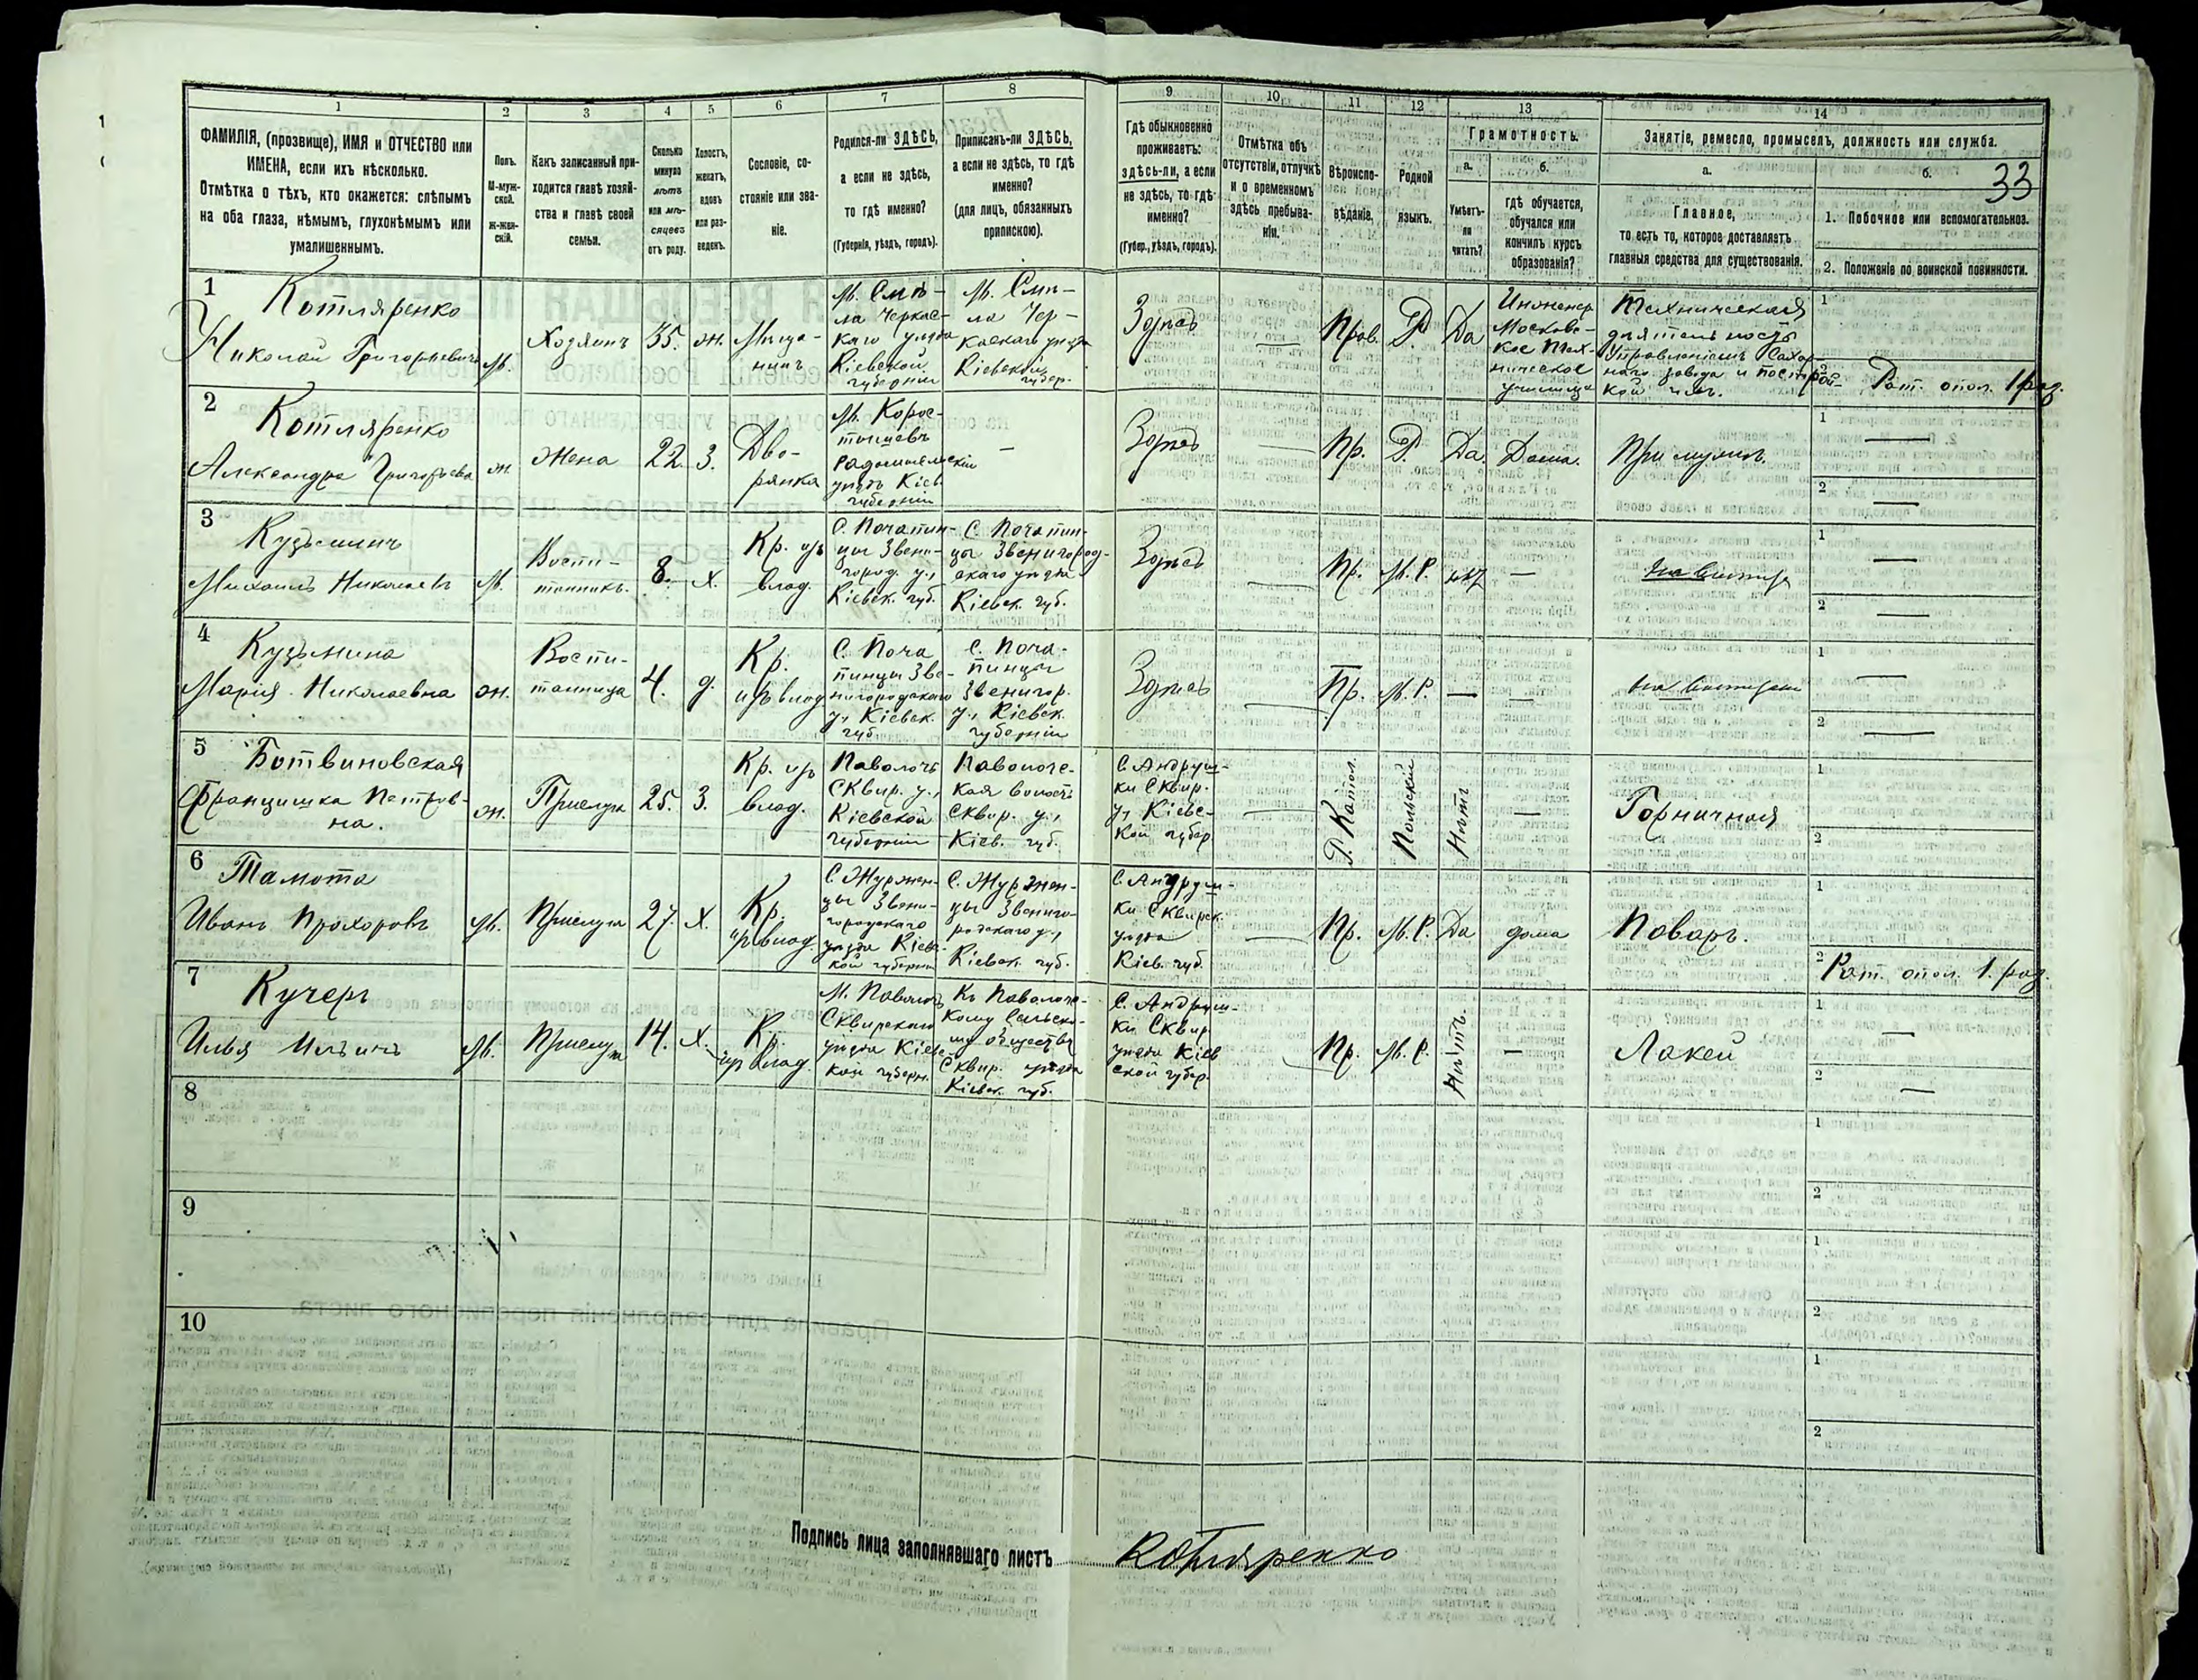 1 2 3 4 5 6 7 8 9 10 11 12 13 14
ФАМИЛІЯ, (прозвище), ИМЯ и ОТЧЕСТВО или
ИМЕНА, если ихъ нѣсколько.
Отмѣтка о тѣхъ, кто окажется: слѣпымъ
на оба глаза, нѣмымъ, глухонѣмымъ или
умалишеннымъ.
Полъ.
М-муж-
ской.
Ж-жен-
скій.
Какъ записанный при-
ходится главѣ хозяй-
ства и главѣ своей
семьи.
Сколько
минуло
лѣтъ
или мѣ-
сяцевъ
отъ роду.
Холостъ,
женатъ,
вдовъ
или раз-
веденъ.
Сословіе, со-
стояніе или зва-
ніе.
Родился-ли ЗДѢСЬ,
а если не здѣсь,
то гдѣ именно?
(Губернія, уѣздъ, городъ).
Приписанъ-ли ЗДѢСЬ,
а если не здѣсь, то гдѣ
именно?
(для лицъ, обязанныхъ
припискою).
Гдѣ обыкновенно
проживаетъ:
здѣсь-ли, а если
не здѣсь, то гдѣ
именно?
(Губер., уѣздъ, городъ).
Отмѣтка объ
отсутствіи, отлучкѣ
и о временномъ
здѣсь пребыва-
ніи.
Вѣроиспо-
вѣданіе.
Родной
языкъ.
Грамотность.
а.
Умѣетъ-
ли
читать?
б.
гдѣ обучается,
обучался или
кончилъ курсъ
образованія?
Занятіе, ремесло, промыселъ, должность или служба.
а.
Главное,
то есть то, которое доставляетъ
главныя средства для существованія.
б.
33
1. Побочное или вспомогательное.
2. Положеніе по воинской повинности.
1
Котляренко
Николай Григорьевичъ
М.
Хозяинъ
35.
ж.
Мѣща-
нинъ
М. Смѣ-
ла Черкас-
каго уѣзда
Кіевской
губерніи
М. Смѣ-
ла Чер-
каскаго уѣзда
Кіевской
губер.
Здѣсь
—
Прав.
Р.
Да
Инженер
Московс-
кое Тех-
ническое
училище
Техническая
дѣятельность
Управленіемъ Сахар-
наго завода и построй-
кой
1
2
Рат. опол. 1 раз.
2
Котляренко
Александра Григорьева
ж
Жена
22.
З.
Дво-
рянка
М. Корос-
тышевъ
Радомысльскій
уѣздъ Кіев.
губерніи
—
Здѣсь
—
Пр.
Р.
Да
Дома.
При мужѣ.
1
—
2
—
3
Кузьминъ
Михаилъ Николаевъ
М.
Воспи-
танникъ.
8.
Х.
Кр. изъ
влад.
С. Почапин-
цы Звени-
город. у.,
Кіевск. губ.
С. Почапин-
цы Звенигород-
скаго уѣзда
Кіевск. губ.
Здѣсь
—
Пр.
М. Р.
—
1
—
2
—
4
Кузьмина
Марія Николаевна
ж.
Воспи-
танница
4.
д.
Кр.
изъ влад
С. Поча
пинцы Зве-
нигородскаго
у., Кіевск.
губ.
С. Поча-
пинцы
Звенигор.
у., Кіевск.
губерніи
Здѣсь
—
Пр.
М. Р.
—
—
1
—
2
—
5
Ботвиновская
Францишка Петров-
на.
ж.
Прислуга
25.
З.
Кр. изъ
влад.
Паволочь
Сквир. у.,
Кіевской
губерніи
Паволочс-
кая волость
Сквир. у.,
Кіев. губ.
С. Андруш-
ки Сквир.
у., Кіевс-
кой губер
—
Р. Катол.
Польскій
Нѣтъ
—
Горничная
1
2
6
Тамота
Иванъ Прохоровъ
М.
Прислуга
27.
Х.
Кр.
изъ влад.
С. Журжен-
цы Звени-
городскаго
уѣзда Кіевс-
кой губерніи
С. Журжен-
цы Звениго-
родскаго у.,
Кіевск. губ.
С. Андруш-
ки Сквирск.
уѣзда
Кіев. губ.
—
Пр.
М. Р.
Да
дома
Поваръ.
1
2
Рат. опол. 1. раз.
7
Кучеръ
Илья Ильичъ
М.
Прислуга
14.
Х.
Кр.
изъ влад.
М. Паволочь
Сквирскаго
уѣзда Кіевс-
кой губерн.
Къ Паволочс-
кому Сельско-
му обществу
Сквир. уѣзда
Кіевск. губ.
С. Андруш-
ки Сквир.
уѣзда Кіев
ской губер.
—
Пр.
М. Р.
Нѣтъ.
—
Лакей
1
—
2
—
8
1
2
9
1
2
10
1
2
Подпись лица заполнявшаго листъ Котляренко